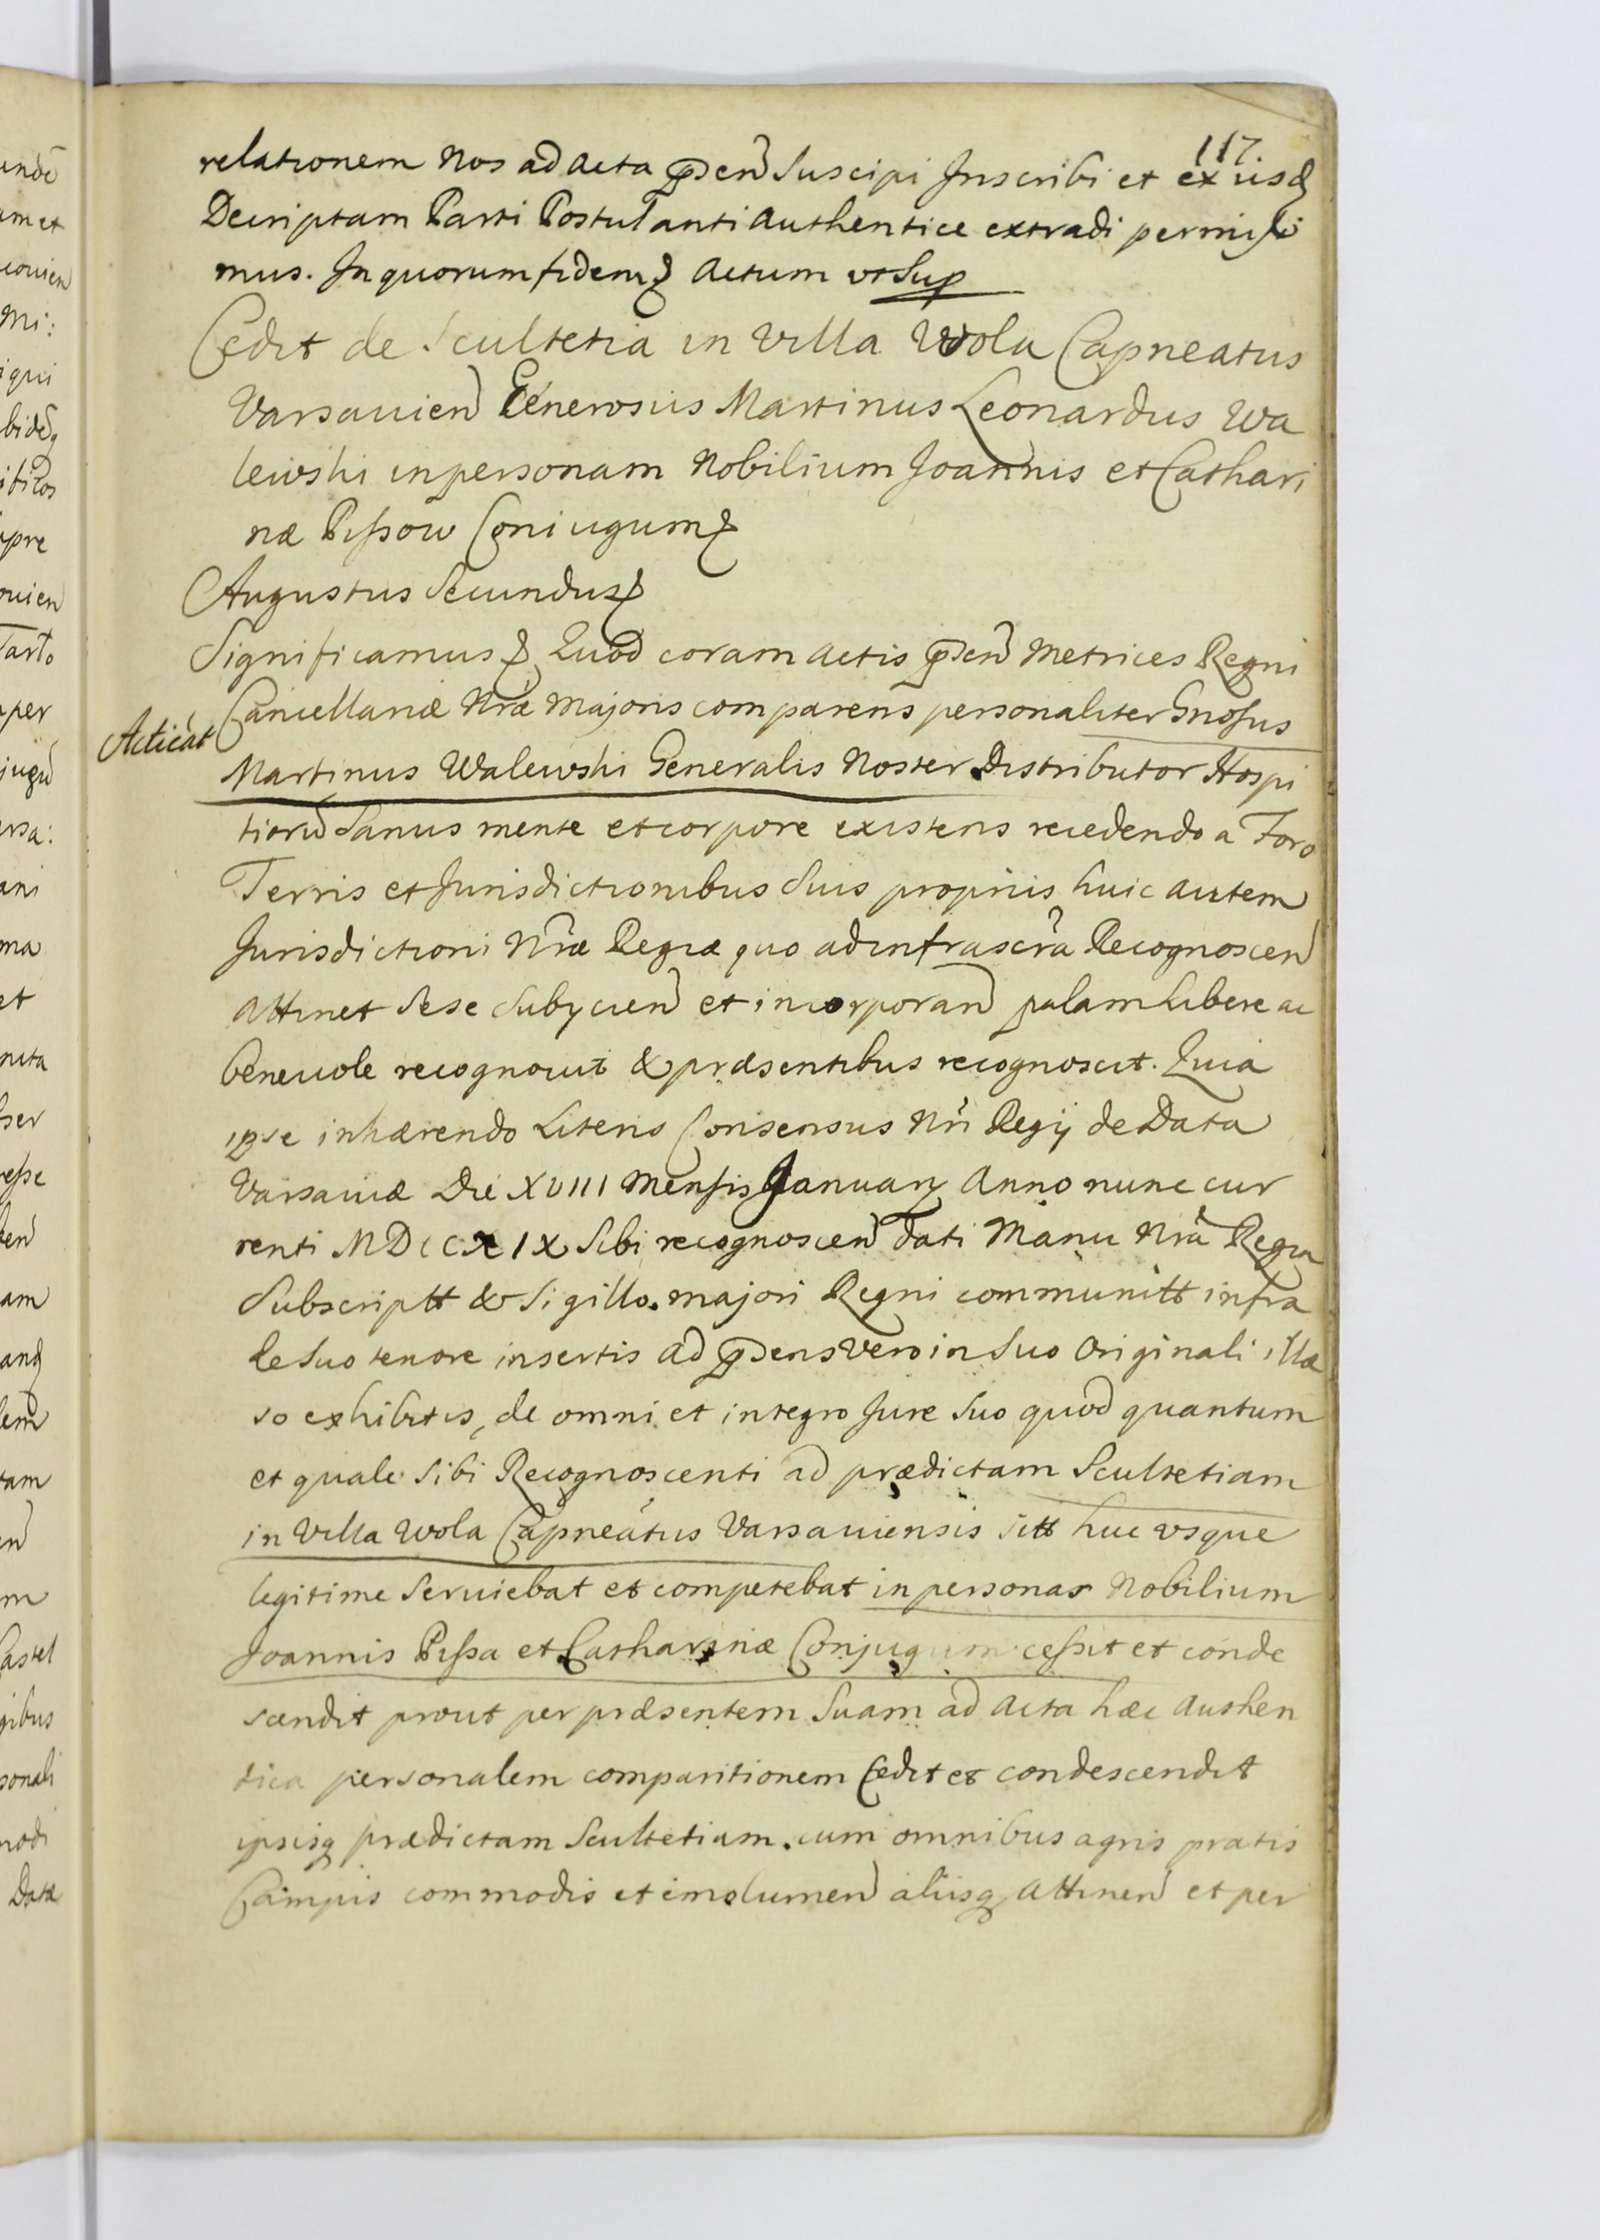 117.
relationem Nos ad Acta pden Suscipi Inscribi et ex iisd
Descriptam Parti Postulanti Authentice extradi permisi
mus. In quorum fidem Actum ut Sup
Cedit de Scultetia in Villa Wola Capneatus
Varsauien Generosus Martinus Leonardus Wa
lewski in personam Nobilium Joannis et Cathari
næ Pißow Coniugum
Augustus Secundus
Significamus Quod coram Actis pden Metrices Regni
Cancellariæ Nræ Majoris comparens personaliter Gnosus
Acticat
Martinus Walewski Generalis Noster Distributor Hospi
tiorū Sanus mente et corpore existens recedendo a Foro
Terris et Jurisdictionibus Suis proprÿs huic autem
Jurisdictioni Nræ Regiæ quo ad infrascra Recognoscen
Attinet Sese Subycien et incorporan palam Libere ac
benevole recognovit & præsentibus recognoscit. Quia
ipse inhærendo Literis Consensus Nri Regÿ de Data
Varsaviæ Die XVIII Mensis January Anno nunc cur
renti MDCCXIX Sibi recognoscen dati Manu Nra Regia
Subscriptt & Sigillo majori Regni communitt infra
de Suo tenore insertis ad pdens Vero in Suo Originali illæ
so exhibitis, de omni et integro Jure Suo quod quantum
et quale Sibi Recognoscenti ad prædictam Scultetiam
in Villa Wola Capneatus Varsauiensis Sitt huc usque
legitime Serviebat et competebat in personas Nobilium
Joannis Pißa et Catharinæ Conjugum ceßit et conde
scendit prout per præsentem Suam ad Acta hæc Authen
tica personalem comparitionem Cedit et condescendit
ipsisq prædictam Scultetiam cum omnibus agris pratis
Campis commodis et emolumen alÿsq Attinen et per